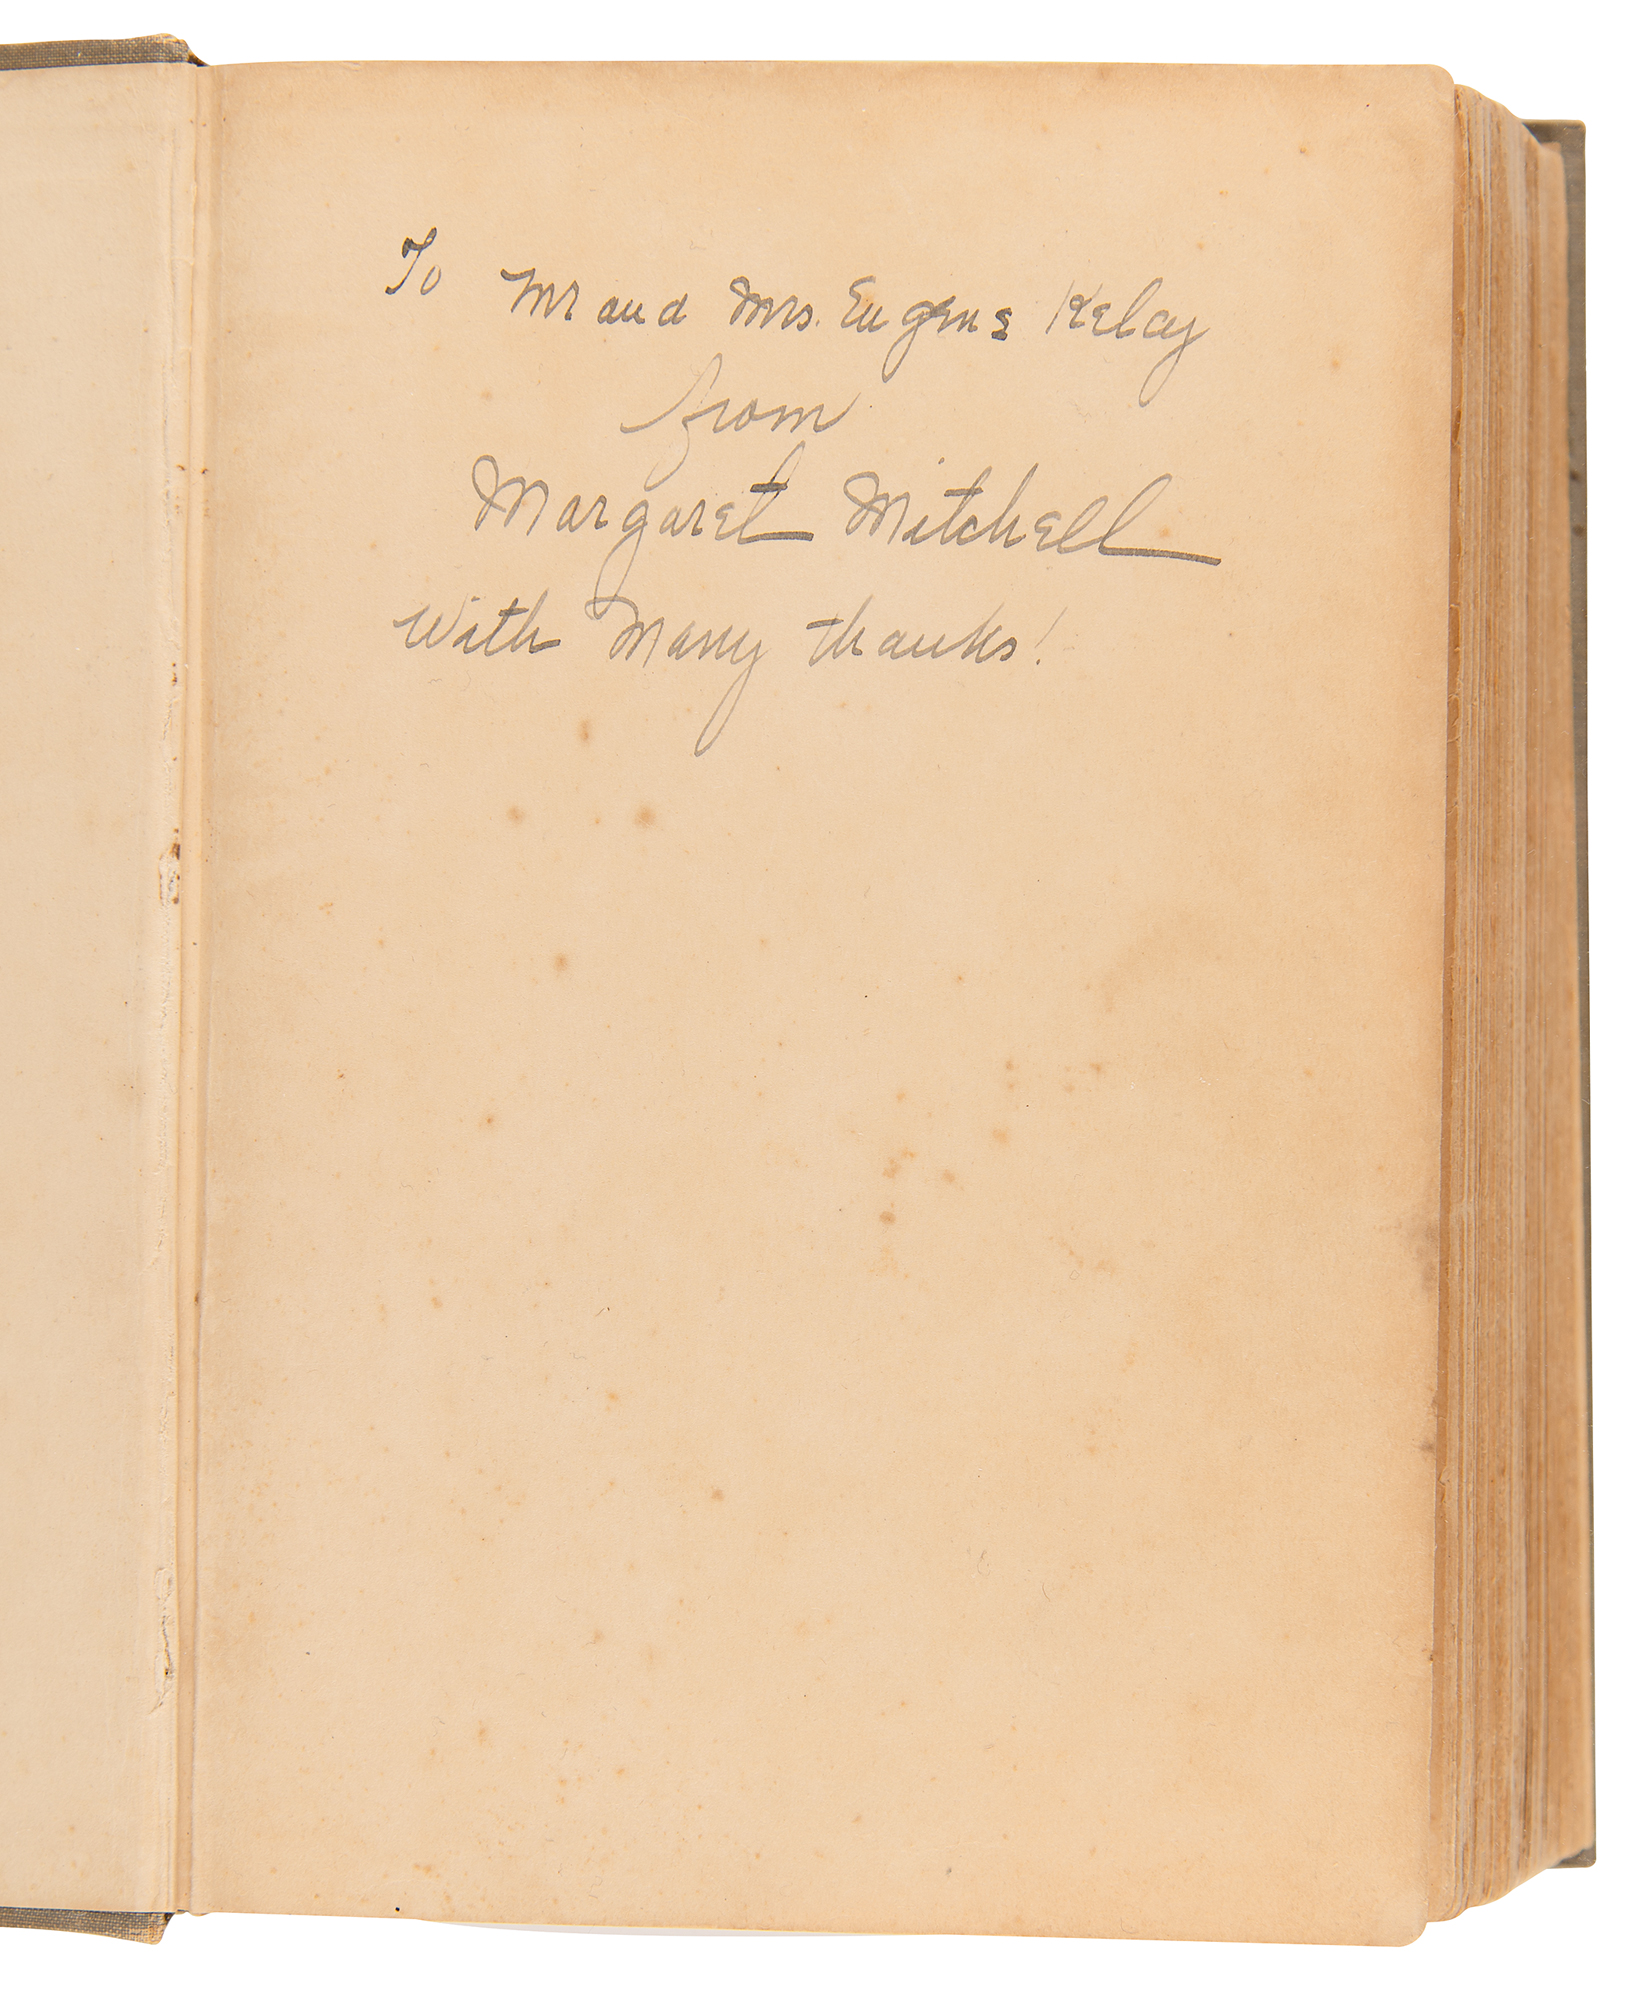 To Mr and Mrs. Eugene Kelcy
from
Margaret Mitchell
With Many thanks!